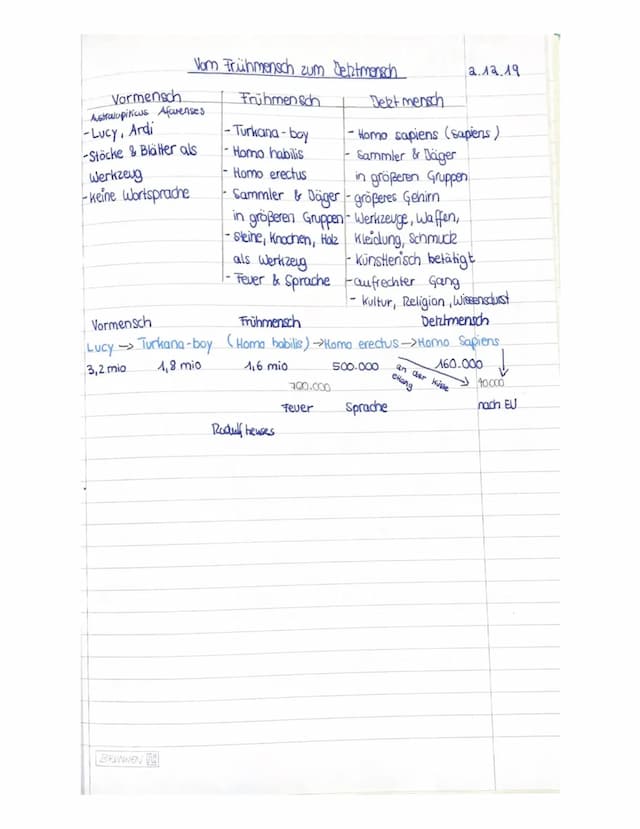 Vom Frühmensch zum Jetztmensch 2.12.19
Vormensch
Australopiticus Afarenses
- Lucy, Ardi
- Stöcke & Blätter als
Werkzeug
- keine Wortsprache
Frühmensch
- Turkana-boy
- Homo habilis
- Homo erectus
- Sammler & Jäger
in größeren Gruppen
- Steine, Knochen, Holz
als Werkzeug
- Feuer & Sprache
Jetztmensch
- Homo sapiens (sapiens)
- Sammler & Jäger
in größeren Gruppen
- größeres Gehirn
- Werkzeuge, Waffen,
Kleidung, Schmuck
- künstlerisch betätigt
- aufrechter Gang
- Kultur, Religion, Wissensdurst
Vormensch Frühmensch Jetztmensch
Lucy → Turkana-boy (Homo habilis) → Homo erectus → Homo Sapiens
3,2 mio 1,8 mio 1,6 mio 500.000 an der Küste 160.000
entlang 40000
790.000
Feuer Sprache nach EU
BRUNNEN